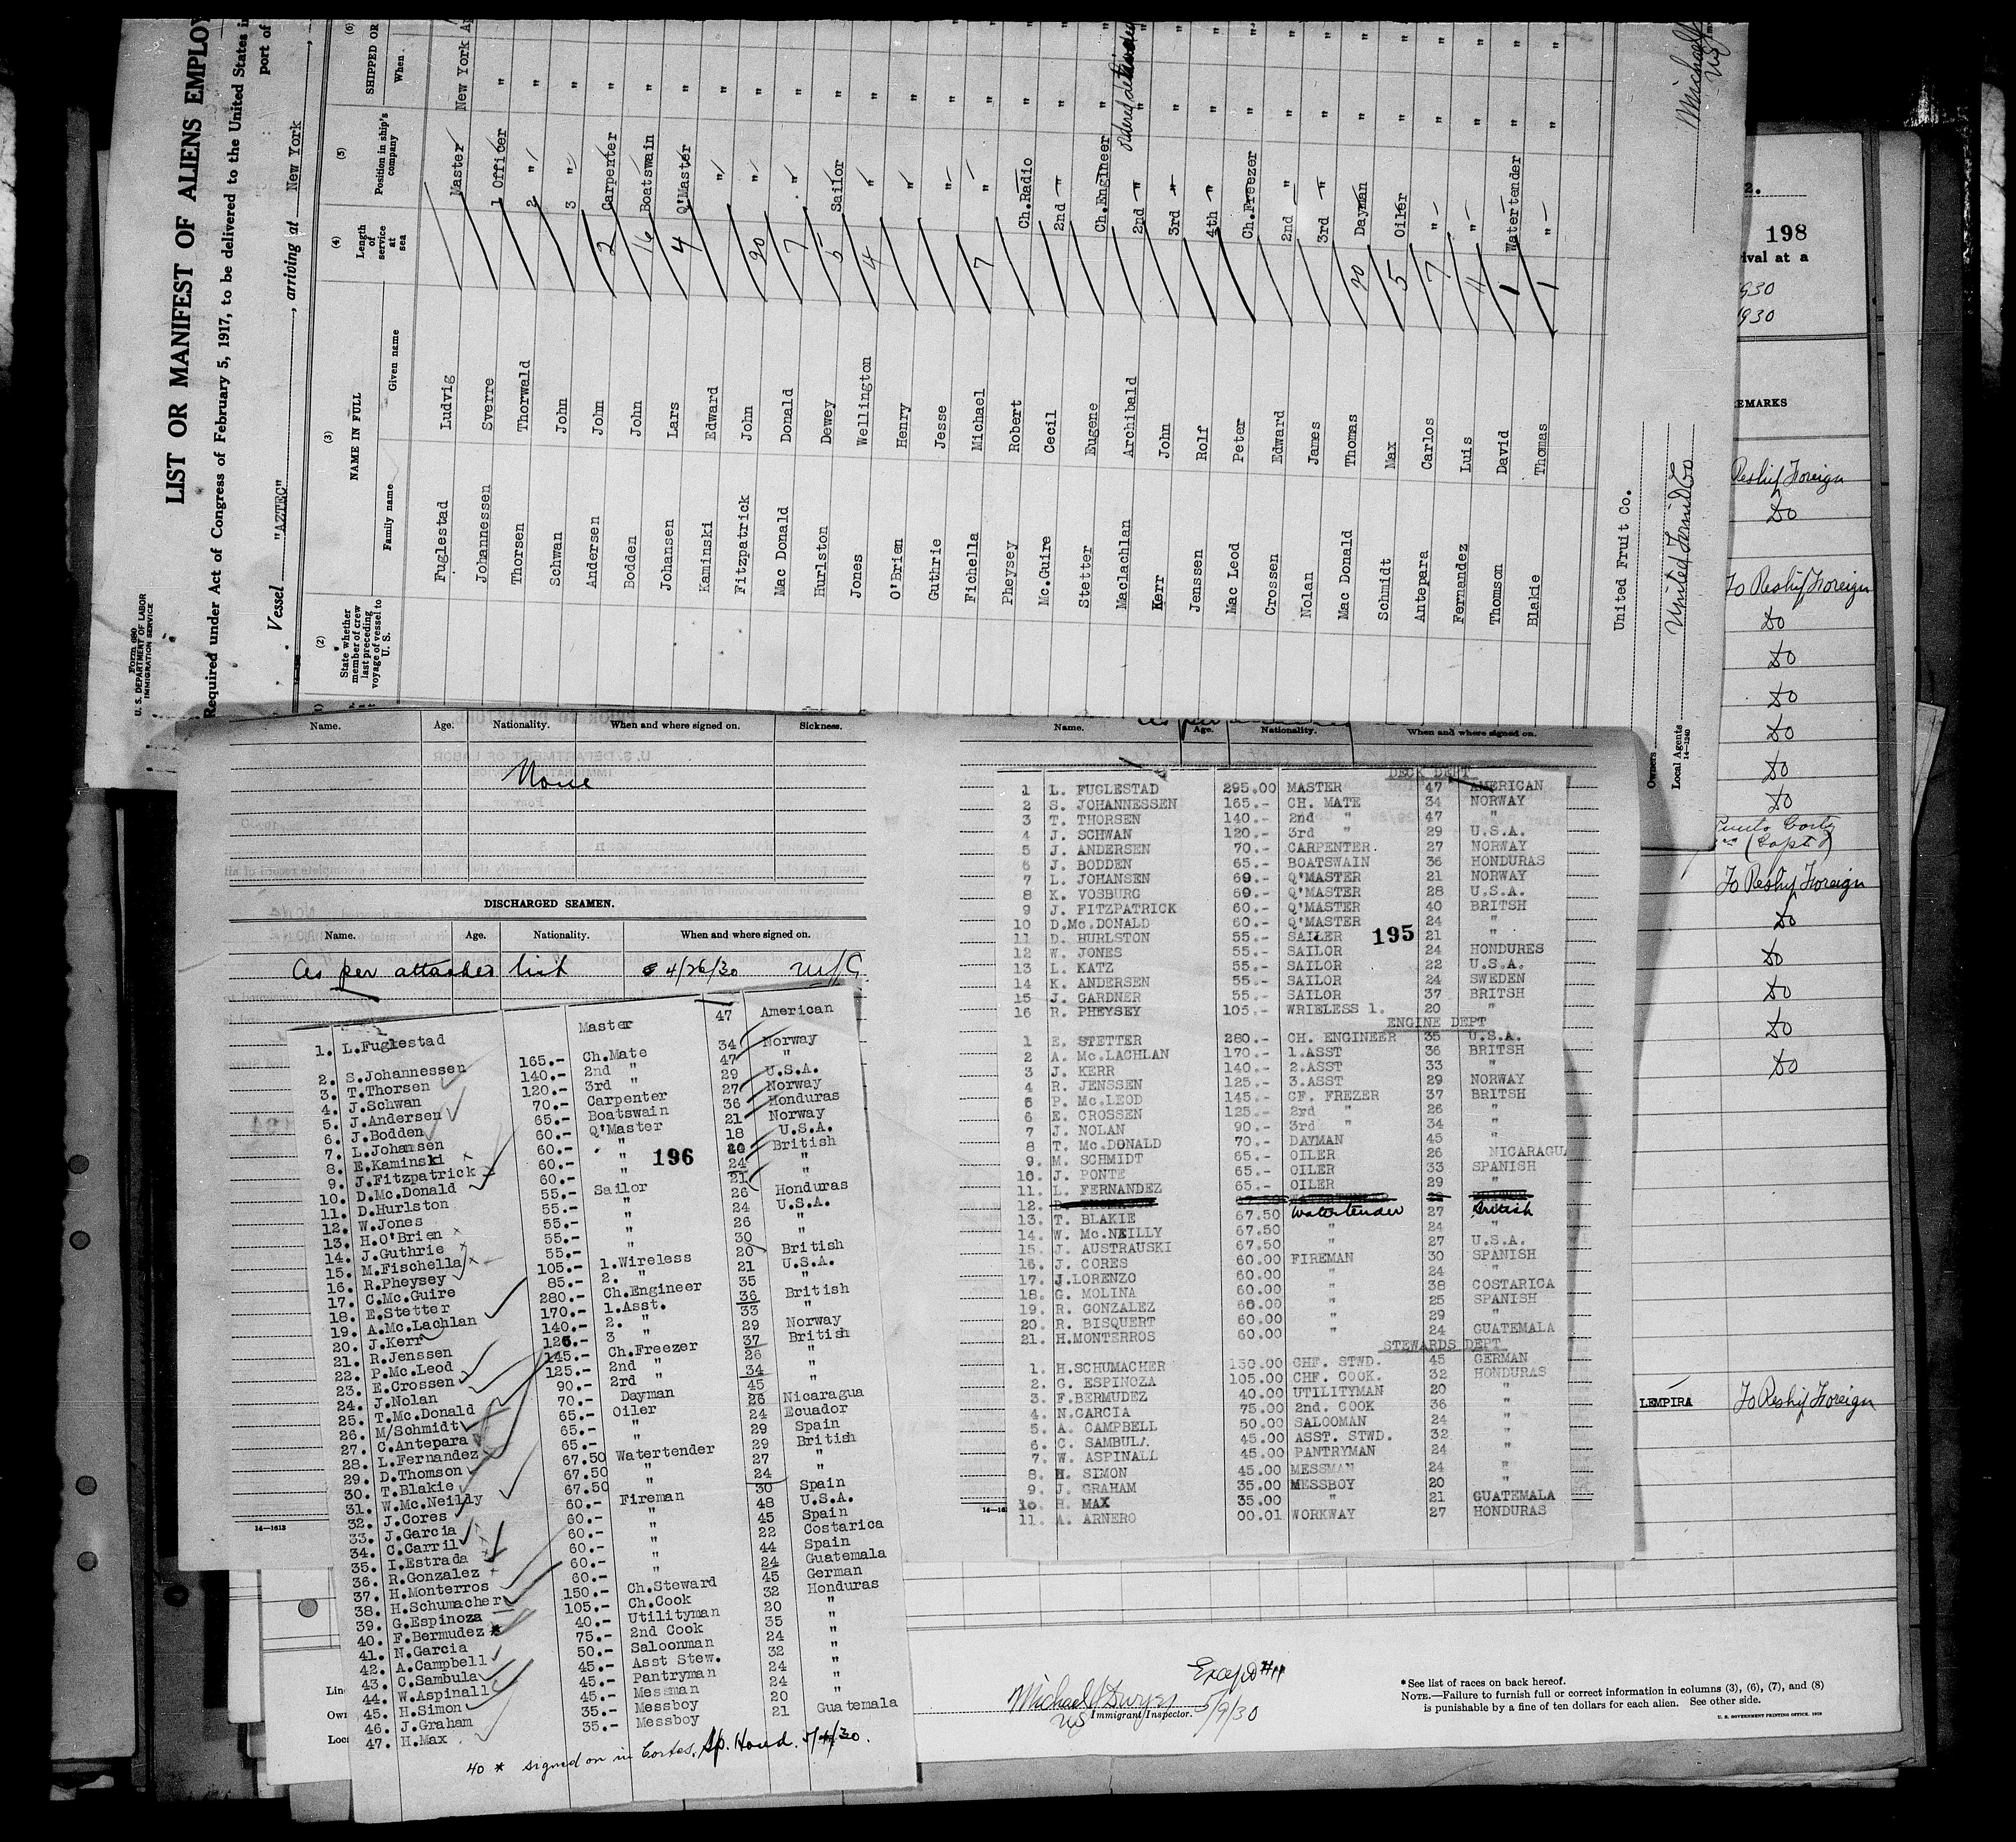 Form 680
U. S. DEPARTMENT OF LABOR
IMMIGRATION SERVICE
LIST OR MANIFEST OF ALIENS EMPLOY
Required under Act of Congress of February 5, 1917, to be delivered to the United States
port of
Vessel "AZTEC", arriving at New York
(2) (3) (4) (5) (6)
State whether member of crew last preceding voyage of vessel to U. S.
NAME IN FULL
Family name Given name
Length of service at sea
Position in ship's company
SHIPPED OR
When
Fuglestad Ludvig Master New York
Johannessen Sverre 1 Officer "
Thorsen Thorwald 2 " "
Schwan John 3 " "
Andersen John 2 Carpenter "
Bodden John 16 Boatswain "
Johansen Lars 4 Q'Master "
Kaminski Edward " "
Fitzpatrick John 20 " "
Mac Donald Donald 7 " "
Hurlston Dewey 5 Sailor "
Jones Wellington 4 " "
O'Brien Henry " "
Guthrie Jesse " "
Fichella Michael 7 " "
Pheysey Robert Ch.Radio "
Mc.Guire Cecil 2nd " "
Stetter Eugene Ch.Engineer "
Maclachlan Archibald 2nd " " ordered detained
Kerr John 3rd " "
Jenssen Rolf 4th " "
Mac Leod Peter Ch.Freezer "
Crossen Edward 2nd " "
Nolan James 3rd " "
Mac Donald Thomas 20 Dayman "
Schmidt Max 5 Oiler "
Antepara Carlos 7 " "
Fernandez Luis 11 " "
Thomson David 1 Watertender "
Blakie Thomas 1 " "
Owners United Fruit Co.
Local Agents United Fruit Co
14—1240
Michael
US
2.
198
ival at a
930
1930
EMARKS
Reship Foreign
Do
To Reship Foreign
Do
Do
Do
Do
Do
Do
Puerto Cortez
(Capt)
To Reship Foreign
Do
Do
Do
Do
Do
LEMPIRA To Reship Foreign
Name. Age. Nationality. When and where signed on. Sickness.
None
DISCHARGED SEAMEN.
Name. Age. Nationality. When and where signed on.
As per attached list 4/26/30 NYC
196
1. L.Fuglestad Master 47 American
2. S.Johannessen 165.- Ch.Mate 34 Norway
3. T.Thorsen 140.- 2nd " 47 "
4. J.Schwan 120.- 3rd " 29 U.S.A.
5. J.Andersen 70.- Carpenter 27 Norway
6. J.Bodden 65.- Boatswain 36 Honduras
7. L.Johansen 60.- Q'Master 21 Norway
8. E.Kaminski 60.- " 18 U.S.A.
9. J.Fitzpatrick 60.- " 40 British
10. D.Mc.Donald 60.- " 24 "
11. D.Hurlston 55.- Sailor 21 "
12. W.Jones 55.- " 26 Honduras
13. H.O'Brien 55.- " 24 U.S.A.
14. J.Guthrie 55.- " 26 "
15. M.Fischella 55.- " 30 "
16. R.Pheysey 105.- 1.Wireless 20 British
17. C.Mc.Guire 85.- 2. " 21 U.S.A.
18. E.Stetter 280.- Ch.Engineer 35 "
19. A.Mc.Lachlan 170.- 1.Asst. 36 British
20. J.Kerr 140.- 2. " 33 "
21. R.Jenssen 125.- 3 " 29 Norway
22. P.Mc.Leod 145.- Ch.Freezer 37 British
23. E.Crossen 125.- 2nd " 26 "
24. J.Nolan 90.- 2rd " 34 "
25. T.Mc.Donald 70.- Dayman 45 "
26. M/Schmidt 65.- Oiler 26 Nicaragua
27. C.Antepara 65.- " 24 Ecuador
28. L.Fernandez 65.- " 29 Spain
29. D.Thomson 67.50 Watertender 29 British
30. T.Blakie 67.50 " 27 "
31. W.Mc.Neilly 67.50 " 24 "
32. J.Cores 60.- Fireman 30 Spain
33. J.Garcia 60.- " 48 U.S.A.
34. C.Carril 60.- " 45 Spain
35. I.Estrada 60.- " 22 Costarica
36. R.Gonzalez 60.- " 44 Spain
37. H.Monterros 60.- " 24 Guatemala
38. H.Schumacher 150.- Ch.Steward 45 German
39. G.Espinoza 105.- Ch.Cook 32 Honduras
40. F.Bermudez * 40.- Utilityman 20 "
41. N.Garcia 75.- 2nd Cook 35 "
42. A.Campbell 50.- Saloonman 24 "
43. C.Sambula 45.- Asst Stew. 32 "
44. W.Aspinall 45.- Pantryman 24 "
45. H.Simon 45.- Messman 24 "
46. J.Graham 35.- Messboy 20 "
47. H.Max 35.- Messboy 21 Guatemala
40 * signed on in Cortes, Sp. Hond.
14—1613
Name. Age. Nationality. When and where signed on.
As per
DECK DEPT
1 L. FUGLESTAD 295.00 MASTER 47 AMERICAN
2 S. JOHANNESSEN 165.- CH. MATE 34 NORWAY
3 T. THORSEN 140.- 2nd " 47 "
4 J. SCHWAN 120.- 3rd " 29 U.S.A.
5 J. ANDERSEN 70.- CARPENTER. 27 NORWAY
6 J. BODDEN 65.- BOATSWAIN 36 HONDURAS
7 L. JOHANSEN 60.- Q'MASTER 21 NORWAY
8 K. VOSBURG 60.- Q'MASTER 28 U.S.A.
9 J. FITZPATRICK 60.- Q'MASTER 40 BRITSH
10 D.Mc.DONALD 60.- Q'MASTER 24 "
11 D. HURLSTON 55.- SAILER 21 "
195
12 W. JONES 55.- SAILOR 24 HONDURES
13 L. KATZ 55.- SAILOR 22 U.S.A.
14 K. ANDERSEN 55.- SAILOR 24 SWEDEN
15 J. GARDNER 55.- SAILOR 37 BRITSH
16 R. PHEYSEY 105.- WRIELESS 1. 20 "
ENGINE DEPT
1 E. STETTER 280.- CH. ENGINEER 35 U.S.A.
2 A. Mc.LACHLAN 170.- 1.ASST 36 BRITSH
3 J. KERR 140.- 2.ASST 33 "
4 R. JENSSEN 125.- 3.ASST 29 NORWAY
5 P. Mc.LEOD 145.- CF. FREZER 37 BRITSH
6 E. CROSSEN 125.- 2rd " 26 "
7 J. NOLAN 90.- 3rd " 34 "
8 T. Mc.DONALD 70.- DAYMAN 45 "
9. M. SCHMIDT 65.- OILER 26 NICARAGU
10. J. PONTE 65.- OILER 33 SPANISH
11. L. FERNANDEZ 65.- OILER 29 "
12.
13. T. BLAKIE 67.50 Watertender 27 British
14. W. Mc.NEILLY 67.50 " 24 "
15. J. AUSTRAUSKI 67.50 " 27 U.S.A.
16. J. CORES 60.00 FIREMAN 30 SPANISH
17. J.LORENZO 60.00 " 24 "
18. G. MOLINA 60.00 " 38 COSTARICA
19. R. GONZALEZ 60.00 " 25 SPANISH
20. R. BISQUERT 60.00 " 29 "
21. H.MONTERROS 60.00 " 24 GUATEMALA
STEWARDS DEPT
1. H.SCHUMACHER 150.00 CHF. STWD. 45 GERMAN
2. G. ESPINOZA 105.00 CHF. COOK. 32 HONDURAS
3. F.BERMUDEZ 40.00 UTILITYMAN 20 "
4. N.GARCIA 75.00 2nd. COOK 36 "
5. A. CAMPBELL 50.00 SALOOMAN 24 "
6. C. SAMBULA 45.00 ASST. STWD. 32 "
7. W. ASPINALL 45.00 PANTRYMAN 24 "
8. H. SIMON 45.00 MESSMAN 24 "
9. J. GRAHAM 35.00 MESSBOY 20 "
10. H. MAX 35.00 " 21 GUATEMALA
11. A. ARNERO 00.01 WORKWAY 27 HONDURAS
Lin
Own
Loc
Except #11
Michael J Dwyer 5/9/30
US Immigrant Inspector.
*See list of races on back hereof.
NOTE.—Failure to furnish full or correct information in columns (3), (6), (7), and (8)
is punishable by a fine of ten dollars for each alien. See other side.
U. S. GOVERNMENT PRINTING OFFICE.